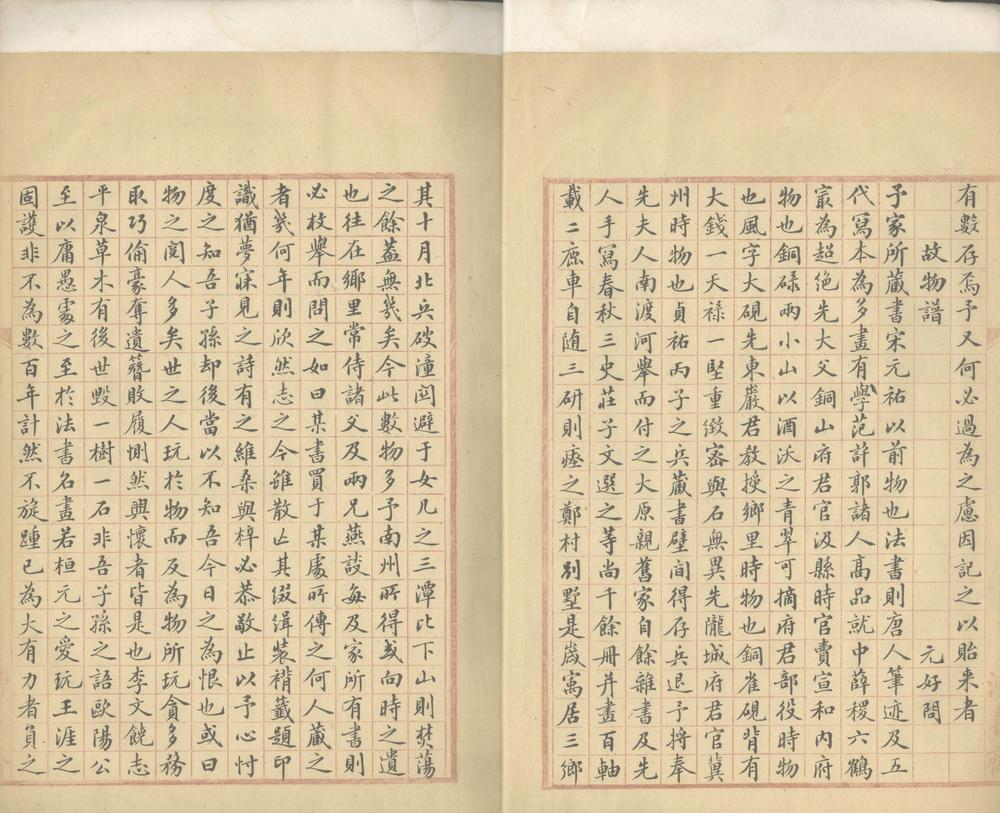 有數存焉予又何必過為之慮因記之以貽来者
故物譜
元好問
予家所蔵書宋元祐以前物也法書則唐人筆迹及五
代冩本為多畫有學范許郭諸人髙品就中薛稷六鶴
㝡為超絶先大父銅山府君官汲縣時官賣宣和内府
物也銅碌兩小山以酒沃之青翠可摘府君部役時物
也風字大硯先東巖君教授鄉里時物也銅雀硯背有
大錢一天禄一堅重緻宻與石無異先隴城府君官冀
州時物也貞祐丙子之兵蔵書壁間得存兵退予将奉
先夫人南渡河舉而付之大原親舊家自餘雜書及先
人手冩春秋三史莊子文選之等尚千餘冊并畫百軸
載二鹿車自随三研則瘞之鄭村別墅是歳寓居三鄉
其十月北兵破潼関避于女几之三潭比下山則焚蕩
之餘葢無㡬矣今此數物多予南州所得或向時之遺
也往在鄉里常侍諸父及兩兄燕談每及家所有書則
必枚舉而問之如曰某書買于某處所傳之何人蔵之
者㡬何年則欣然志之今雖散亾其綴緝装褙籖題印
識猶夢寐見之詩有之維桑與梓必恭敬止以予心忖
度之知吾子孫却後當以不知吾今日之為恨也或曰
物之閱人多矣世之人玩於物而反為物所玩貪多務
取巧偷豪奪遺簪敗履惻然興懷者皆是也李文饒志
平泉草木有後世毀一樹一石非吾子孫之語歐陽公
至以庸愚䖏之至於法書名畫若桓元之愛玩王涯之
固護非不為數百年計然不旋踵已為大有力者負之